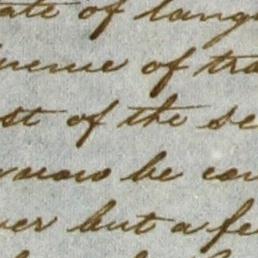 ate of lang
venue of tra
st of the se
know be con
ver but a fe